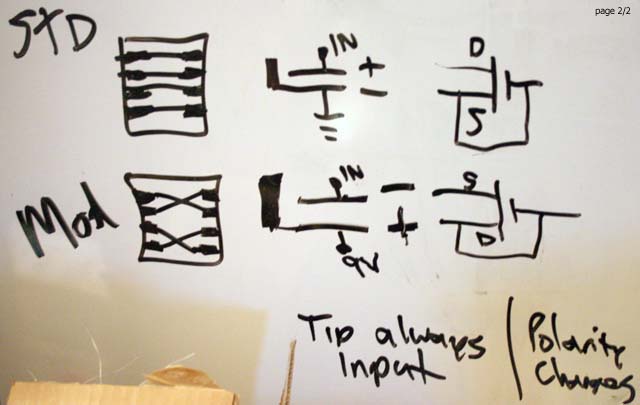 page 2/2
STD
IN
+
-
D
S
Mod
IN
-
+
9V
S
D
Tip always
Input
Polarity
Changes